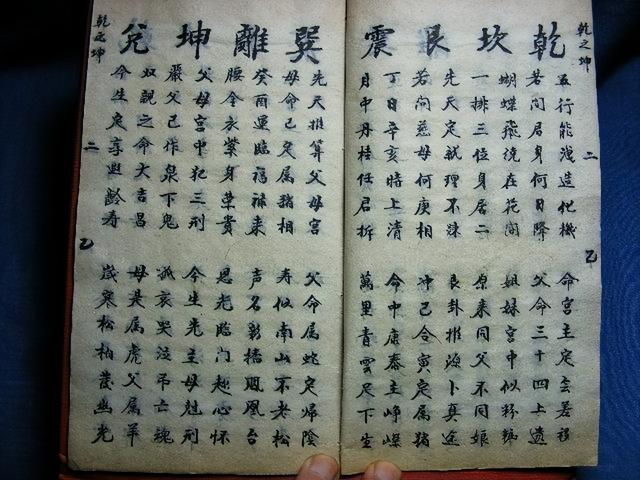 乾之坤 二 乙
乾 坎 艮 震
五行能識造化機 命宮主定
若問君身何日降 父命三十四上遺
蝴蝶飛繞在花間 姐妹宮中似粉粧
一排三位身居二 原来同父不同娘
先天定就理不疎 艮卦推演卜真途
若問慈母何庚相 沖己合寅定属猪
丁日辛亥時上清 命中康泰主崢嶸
月中丹桂任君折 萬里青雲足下生
巽 離 坤 兌
先天推算父母宮 父命属蛇定歸陰
母命已定属猪相 寿似南山不老松
癸酉運臨福禄来 声名彰播鳳凰台
腰金衣紫身荣貴 恩光臨门趁心怀
父母宮中犯三刑 今生先主母尅刑
嚴父已作泉下鬼 孤哀哭泣吊亡魂
奴說之命大吉昌 母是属虎父属羊
今生定享遐齡寿 歲寒松柏發幽光
乾之坤 二 乙